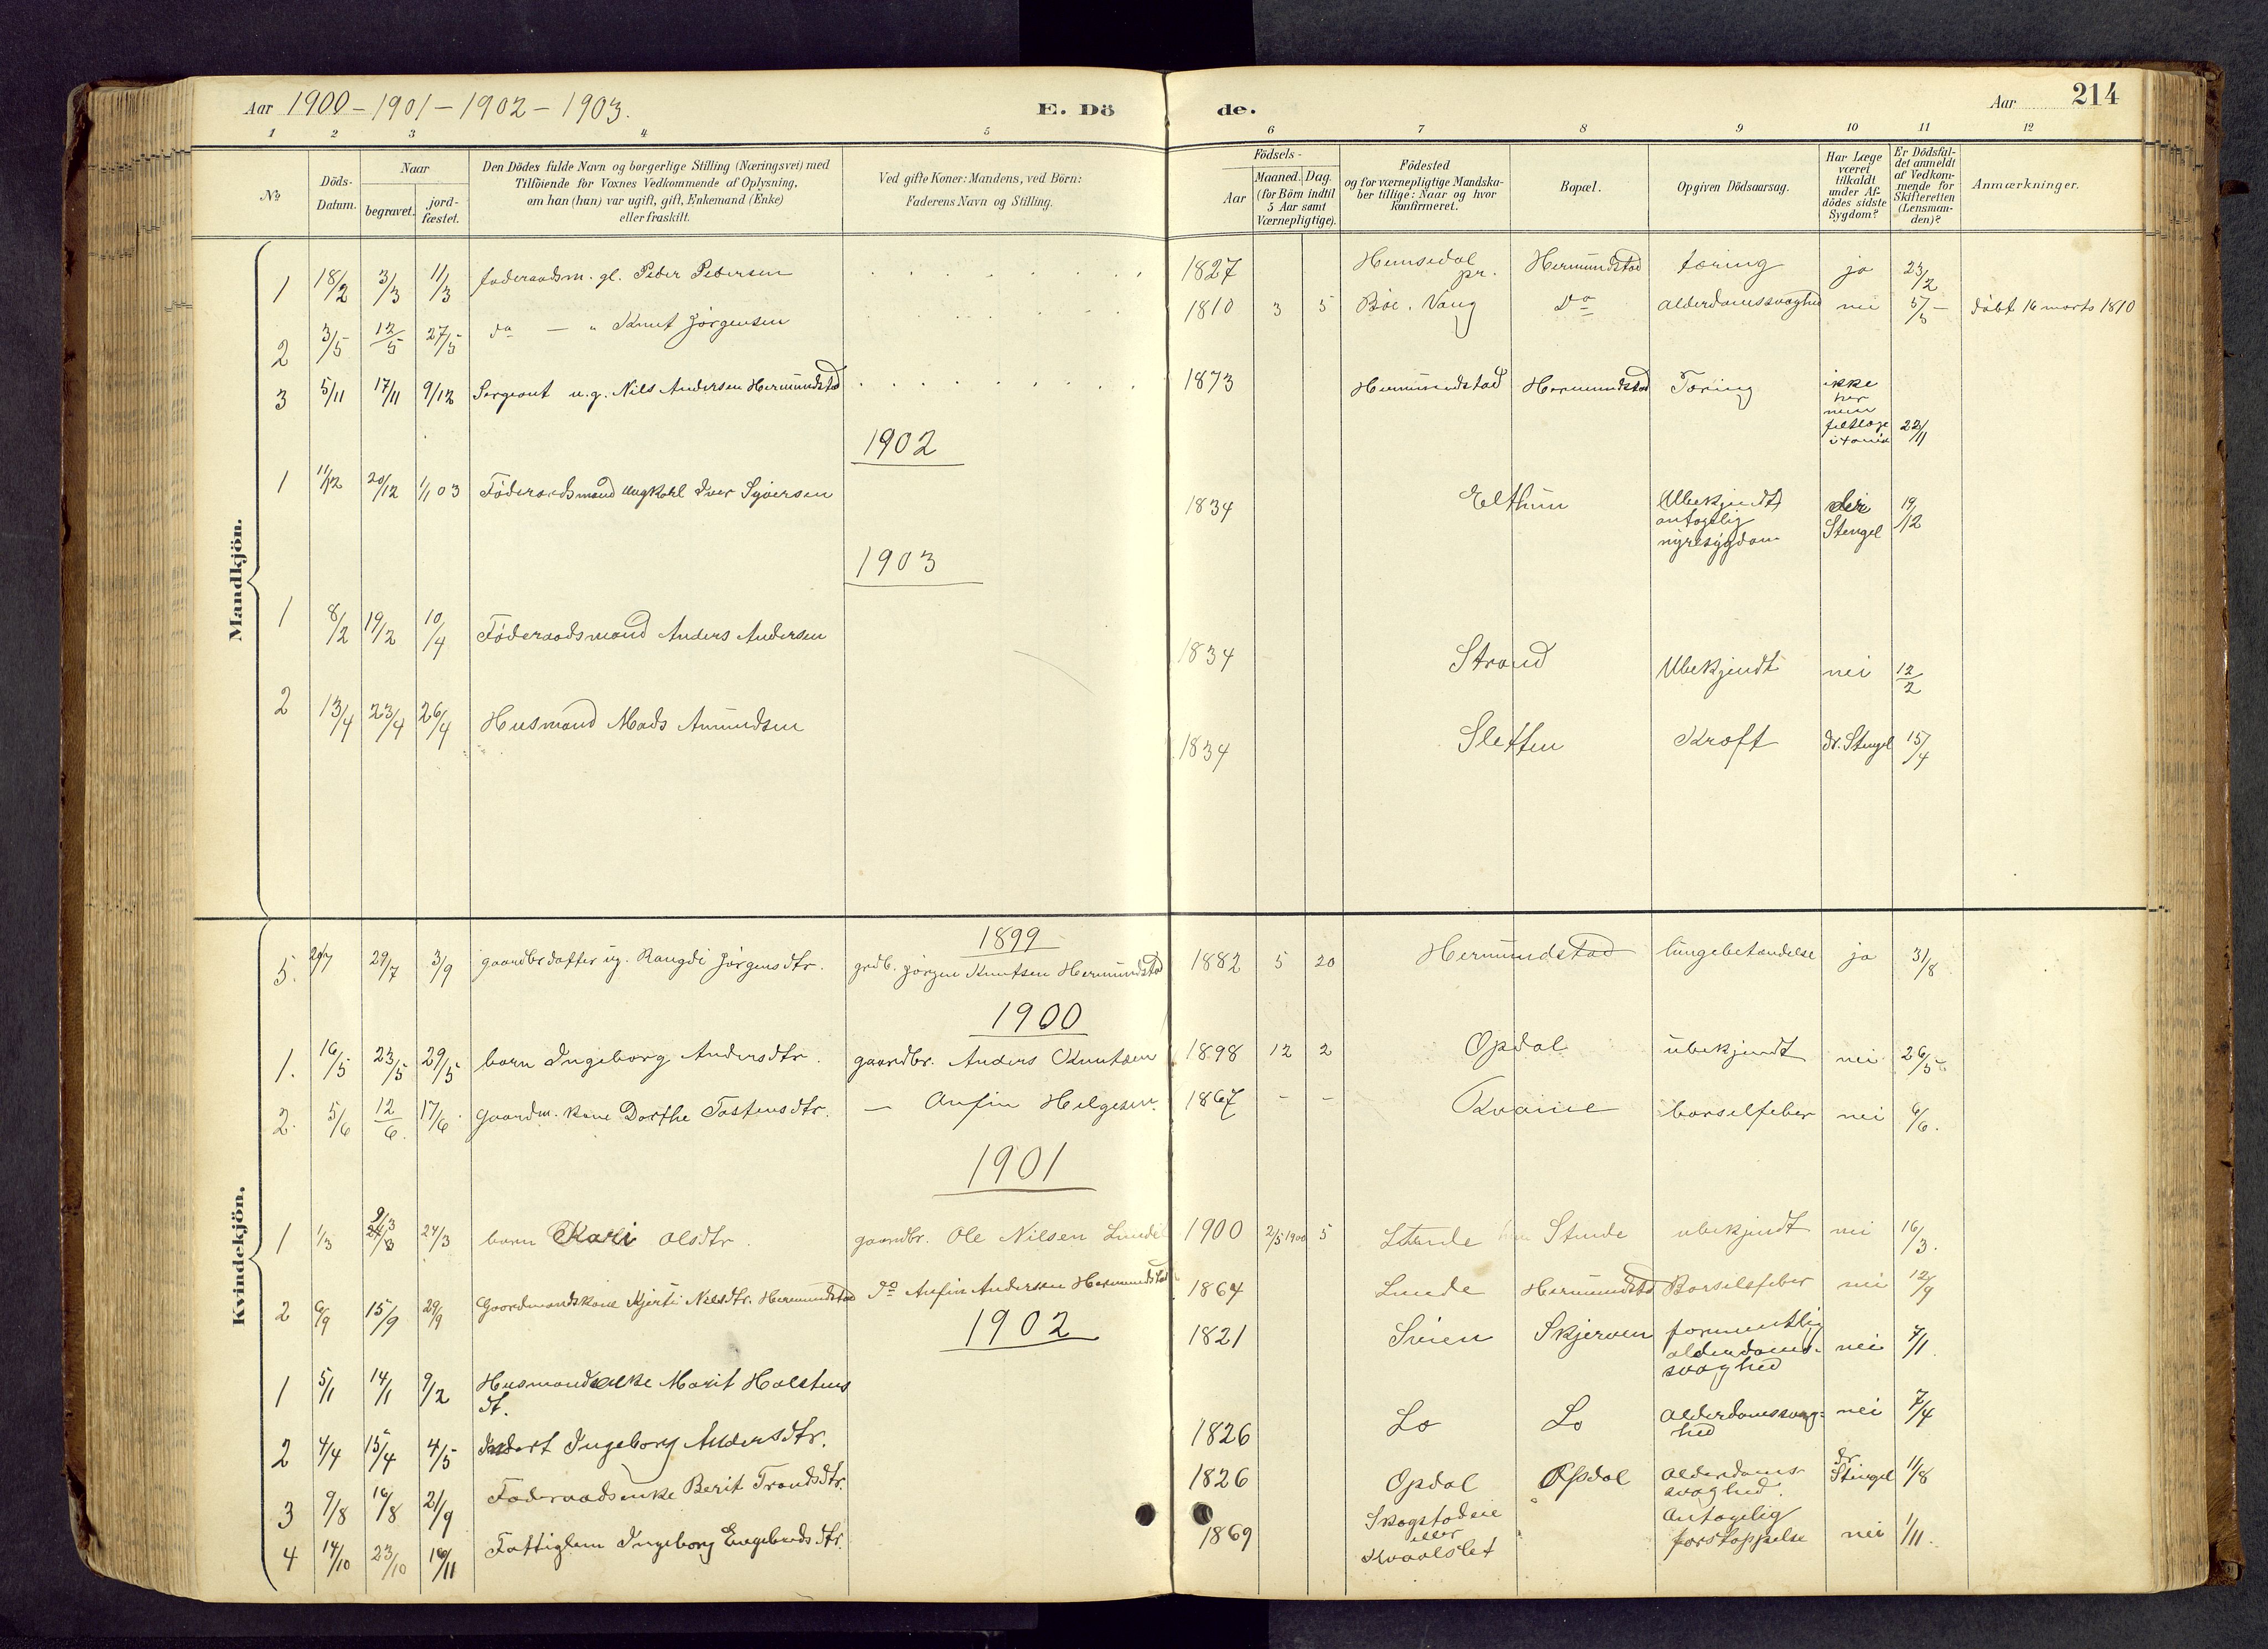 Aar 1900-1901-1902-1903.
E. Dö
de.
Aar
214
1 2 3 4 5 6 7 8 9 10 11 12
No
Döds-Datum.
Naar
begravet.
jord-fæstet.
Den Dödes fulde Navn og borgerlige Stilling (Næringsvei) med
Tilföiende for Voxnes Vedkommende af Oplysning,
om han (hun) var ugift, gift, Enkemand (Enke)
eller fraskilt.
Ved gifte Koner: Mandens, ved Börn:
Faderens Navn og Stilling.
Födsels-
Aar
Maaned. Dag.
(for Börn indtil
5 Aar samt
Værnepligtige).
Födested
og for værnepligtige Mandska-
ber tillige: Naar og hvor
konfirmeret.
Bopæl.
Opgiven Dödsaarsag.
Har Læge
været
tilkaldt
under Af-
dödes sidste
Sygdom?
Er Dödsfal-
det anmeldt
af Vedkom-
mende for
Skifteretten
(Lensman-
den)?
Anmærkninger.
Mandkjön.
1 18/2 3/3 11/3 föderaadsm. gl. Peder Pedersen 1827 Hemsedal pr. Hermundstad tæring ja 23/2
2 3/5 12/5 27/5 do — " Knut Jörgensen 1810 3 5 Böe. Vang Do alderdomssvaghed nei 5/5 döbt 16 marts 1810
3 5/11 17/11 9/12 Sergeant u.g. Nils Andersen Hermundstad 1873 Hermundstad Hermundstad Tæring ikke
her
men
22/11
1902
1 11/12 20/12 1/1 03 Föderaadsmand Ungkarl Iver Syversen 1834 Elthun Ubekjendt
antagelig
nyresygdom
Stengel
19/12
1903
1 8/2 19/2 10/4 Föderaadsmand Anders Andersen 1834 Strand Ubekjendt nei 12/2
2 13/4 23/4 26/4 Husmand Mads Amundsen 1834 Sletten Kræft dr. Stengel 15/4
Kvindekjön.
1899
5. 29/7 3/9 gaardbrdatter ug. Rangdi Jörgensdtr. grdb. Jörgen Knutsen Hermundstad 1882 5 20 Hermundstad lungebetændelse ja 31/8
1900
1. 16/5 23/5 29/5 barn Ingeborg Andersdtr. gaardbr. Anders Knutsen 1898 12 2 Opdal ubekjendt nei 26/5
2. 5/6 12/6 17/6 Gaardm. kone Dorthe Tostensdtr. — Anfin Helgesen 1867 - - Kvame barselfeber nei 6/6.
1901
1 1/3 9/3 24/3 barn Kari Olsdtr. gaardbr. Ole Nilsen Lunde 1900 2/5 1900 5 Lunde Stende ubekjendt nei 16/3.
2 6/9 15/9 29/9 Gaardmandskone Kjersti Nilsdtr. Hermundstad do Anfin Andersen Hermundstad 1864 Lunde Hermundstad Barselsfeber nei 12/9
1902
1 5/1 14/1 9/2 Husmandsenke Marit Halstens
dt.
1821 Svien Skjerven formentlig
alderdoms-
svaghed
nei 7/1
2 4/4 15/4 4/5 Inderst Ingeborg Andersdtr. 1826 Lo Lo Alderdomssvag-
hed
nei 7/4
3 9/8 16/8 21/9 Föderaadsenke Berit Trondsdtr. 1826 Opdal Opdal Alderdoms-
svaghed.
dr
Stengel
11/8
4 14/10 23/10 16/11 Fattiglem Ingeborg Engebretsdtr. 1869 Skogstadeie
eller
Kvaalslet
Antagelig
forstoppelse
nei 1/11.